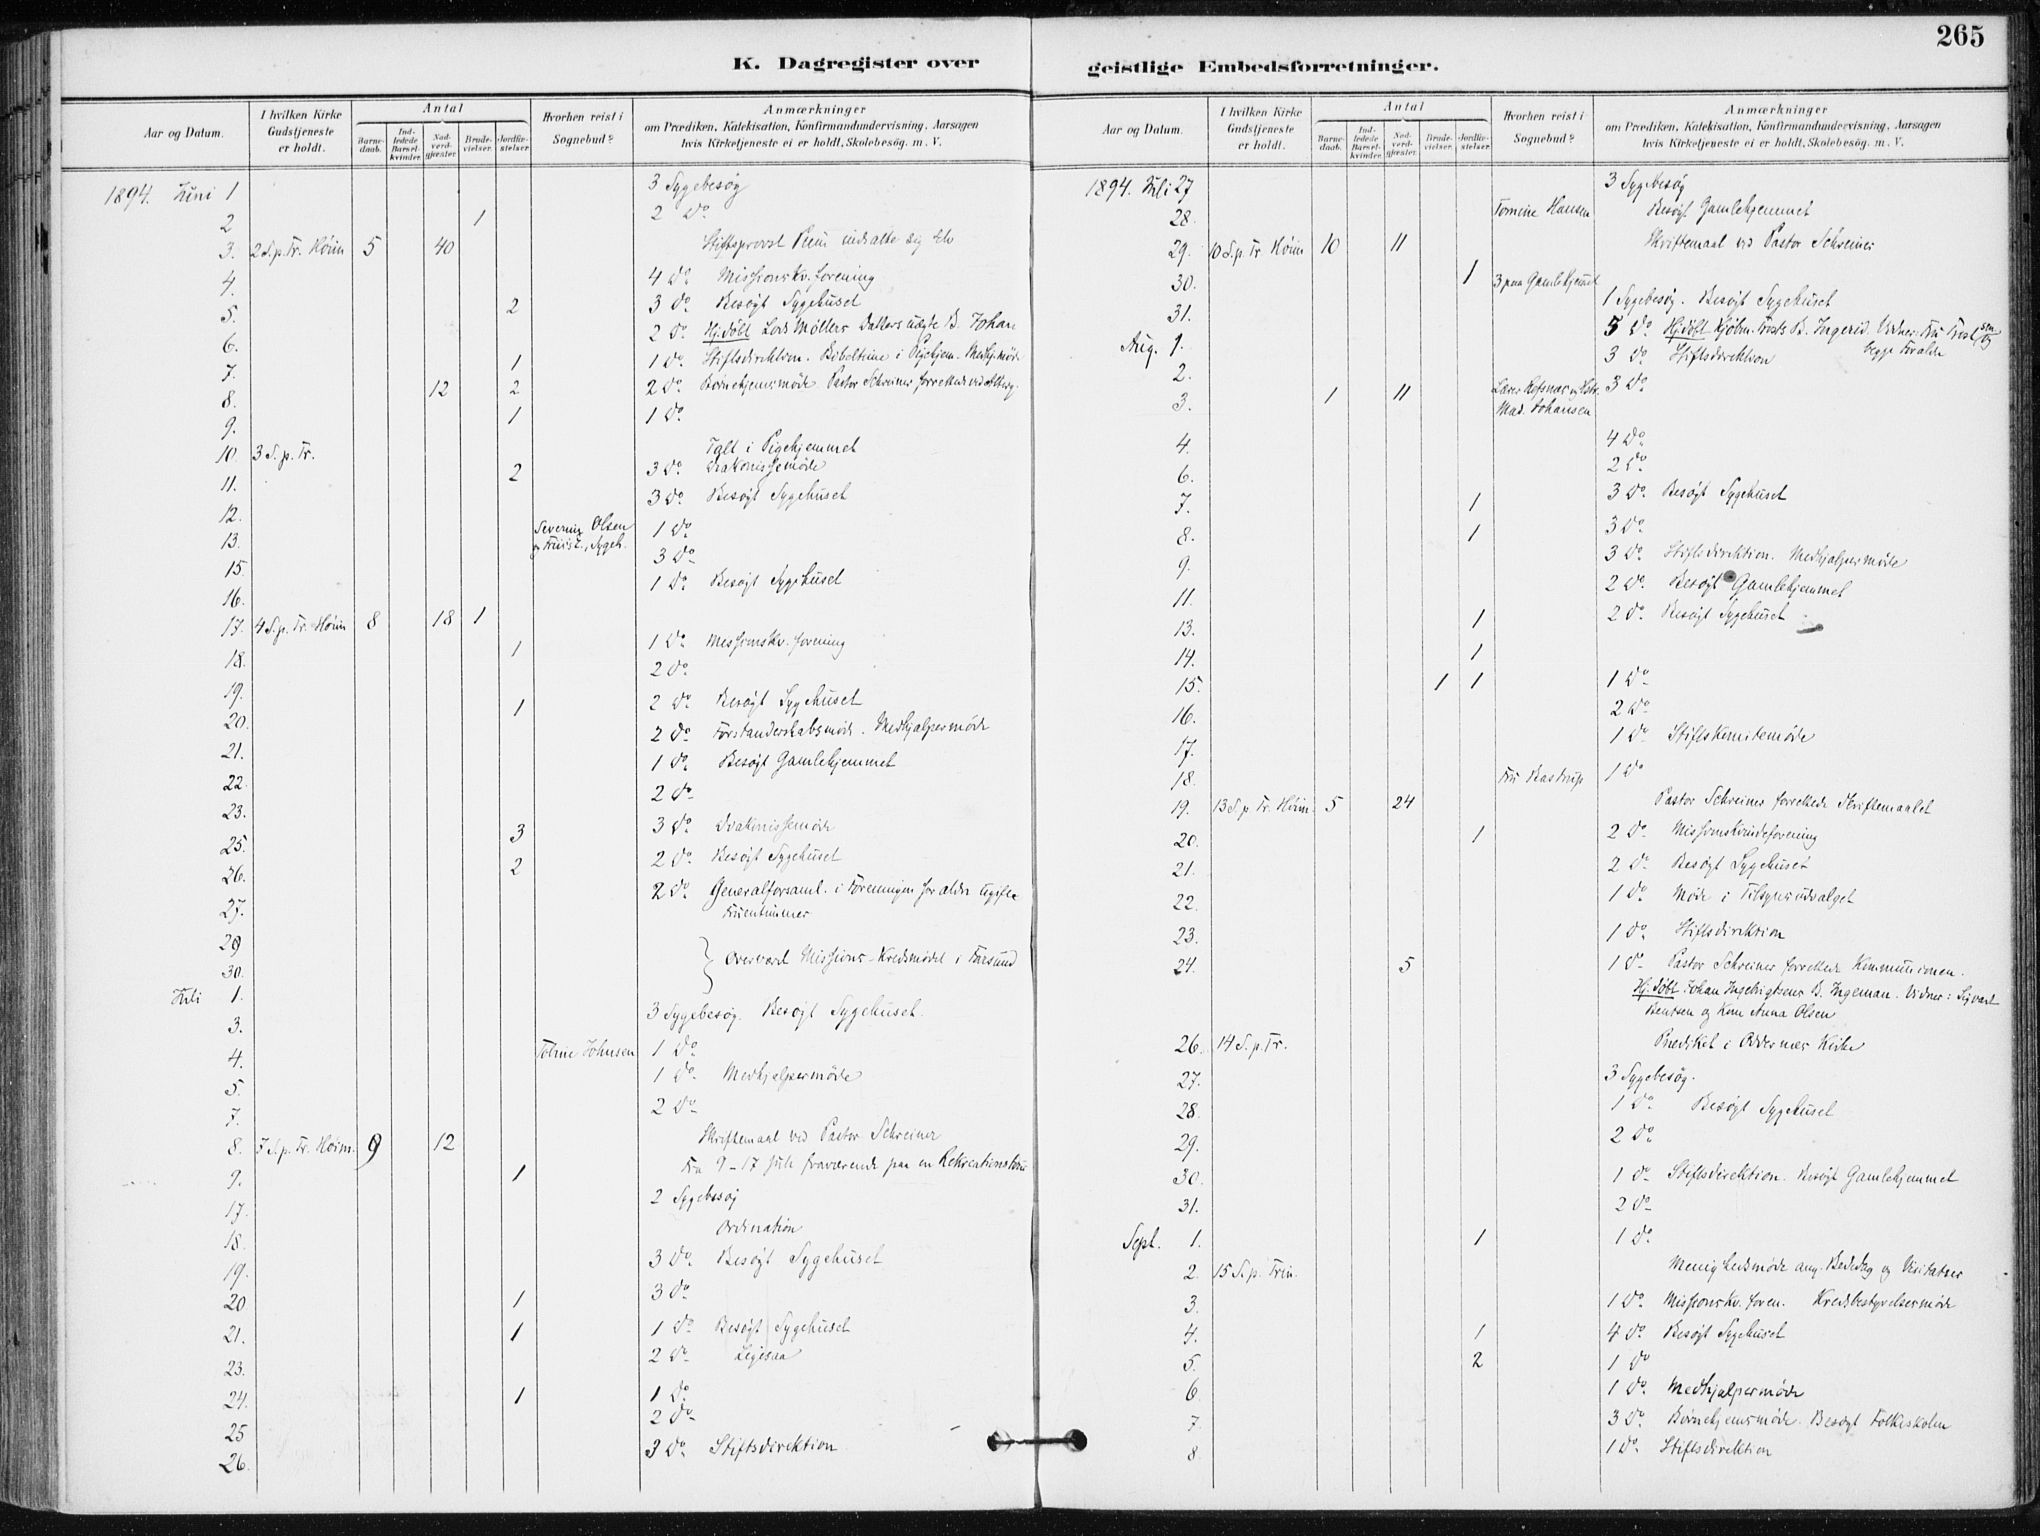 265
K. Dagregister over geistlige Embedsforretninger.
Aar og Datum. I hvilken Kirke Gudstjeneste er holdt. Antal Barnedaab. Indledede Barselkvinder. Nadverdgjæster. Brudevielser. Jordfæstelser. Hvorhen reist i Sognebud? Anmærkninger om Prædiken, Katekisation, Konfirmandundervisning, Aarsagen hvis Kirketjeneste ei er holdt, Skolebesøg. m. V.
1894. Juni 1 3 Sygebesøg
2 1 2 Do
3. 2 S. p. Tr. Høim 5 40 Stiftsprovst indsatte sig
4. 4 Do Missionskv. forening
5. 2 3 Do Besøgt Sygehuset
6. 2 Do. Hj. døbt Lods Møllers Datters uægte B. Johan
7. 1 1 Do. Stiftsdirektion. Bibeltime i Pigehjem. Medhj. møde
8. 12 2 2 Do. Børnehjemsmøde Pastor Schreiner forrettede ved Altherg.
9. 1 1 Do.
10. 3 S. p. Tr. Talt i Pigehjemmet
11. 2 3 Do. Diakonissemøde
12. 3 Do. Besøgt Sygehuset
13. Severin Olsen 1 Do
Sygeh.
15. 3 Do
16. 1 Do. Besøgt Sygehuset
17. 4 S. p. Tr. Høim 8 18 1
18. 1 1 Do. Missionskv. forening
19. 2 Do.
20. 1 2 Do Besøgt Sygehuset
21. 2 Do. Forstanderskabsmøde. Medhjælpermøde
22. 1 Do. Besøgt Gamlehjemmet
23. 2 Do.
25. 3 3 Do. Diakonissemøde
26. 2 2 Do. Besøgt Sygehuset
27. 2 Do. Generalforsaml. i Foreningen for ældre ugifte
Fruentimmer
29
30. } Overværet Missions-Kredsmødet i Farsund
Juli 1.
3. 3 Sygebesøg. Besøgt Sygehuset.
4. Tobine Johnsen 1 Do
5. 1 Do. Medhjælpermøde
7. 2 Do
8. 7 S. p. Tr. Høim. 9 12 Skriftemaal ved Pastor Schreiner
9. 1 Fra 9-17 Juli fraværende paa en Rekreationstour
17. 2 Sygebesøg
18. Ordination
19. 3 Do. Besøgt Sygehuset
20 1 3 Do.
21. 1 1 Do. Besøgt Sygehuset
23. 2 Do
24. 1 1 Do.
25 2 Do
26. 3 Do. Stiftsdirektion
Aar og Datum. I hvilken Kirke Gudstjeneste er holdt. Antal Barnedaab. Indledede Barselkvinder. Nadverdgjæster. Brudevielser. Jordfæstelser. Hvorhen reist i Sognebud? Anmærkninger om Prædiken, Katekisation, Konfirmandundervisning, Aarsagen hvis Kirketjeneste ei er holdt, Skolebesøg. m. V.
1894. Juli 27 3 Sygebesøg
28. Tomine Hansen Besøgt Gamlehjemmet
29. 10 S. p. Tr. Høim 10 11 Skriftemaal ved Pastor Schreiner
30. 1 3 paa Gamlehjemmet
31. 1 Sygebesøg. Besøgt Sygehuset
Aug. 1. 5 Do. Hj. døbt B. Ingerid. Vidner:
begge Forældre
2. 3 Do. Stiftsdirektion
3. 1 11 Lærer 3 Do.
Mad. Johansen
4. 4 Do.
6. 2 Do.
7. 1 3 Do. Besøgt Sygehuset
8. 1 3 Do.
9. 3 Do. Stiftsdirektion. Medhjælpermøde
11. 2 Do. Besøgt Gamlehjemmet
13. 1 2 Do. Besøgt Sygehuset
14. 1
15. 1 1 1 Do
16. 2 Do
17. 1 Do Stiftskomitemøde
18. Fru Kastrup 1 Do
19. 13 S. p. Tr. Høim. 5 24 Pastor Schreiner forrettede Skriftemaalet
20. 1 2 Do. Missionskvindeforening
21. 2 Do. Besøgt Sygehuset
22. 1 Do. Møde i Tilsynsudvalget
23. 1 Do. Stiftsdirektion
24. 5 1 Do Pastor Schreiner forrettede Kommunionen.
Hj. døbt Johan Ingebrigtsens B. Ingeman. Vidner: Sigvart
Bentsen og Kone Anna Olsen
26. 14 S. p. Tr. Prædiket i Oddernæs Kirke
27. 3 Sygebesøg.
28. 1 Do. Besøgt Sygehuset
29. 2 Do
30. 1 Do Stiftsdirektion. Besøgt Gamlehjemmet
31. 2 Do
Sept. 1. 1 1 Do.
2. 15 S. p. Trin. Menighedsmøde ang. Bededag og Visitatser
3. 1 Do. Missionskv. foren. Kredsbestyrelsesmøde
4. 1 4 Do. Besøgt Sygehuset
5. 2 1 Do
6 1 Do. Medhjælpermøde
7. 3 Do. Børnehjemsmøde. Besøgt Folkeskolen
8 1 Do. Stiftsdirektion